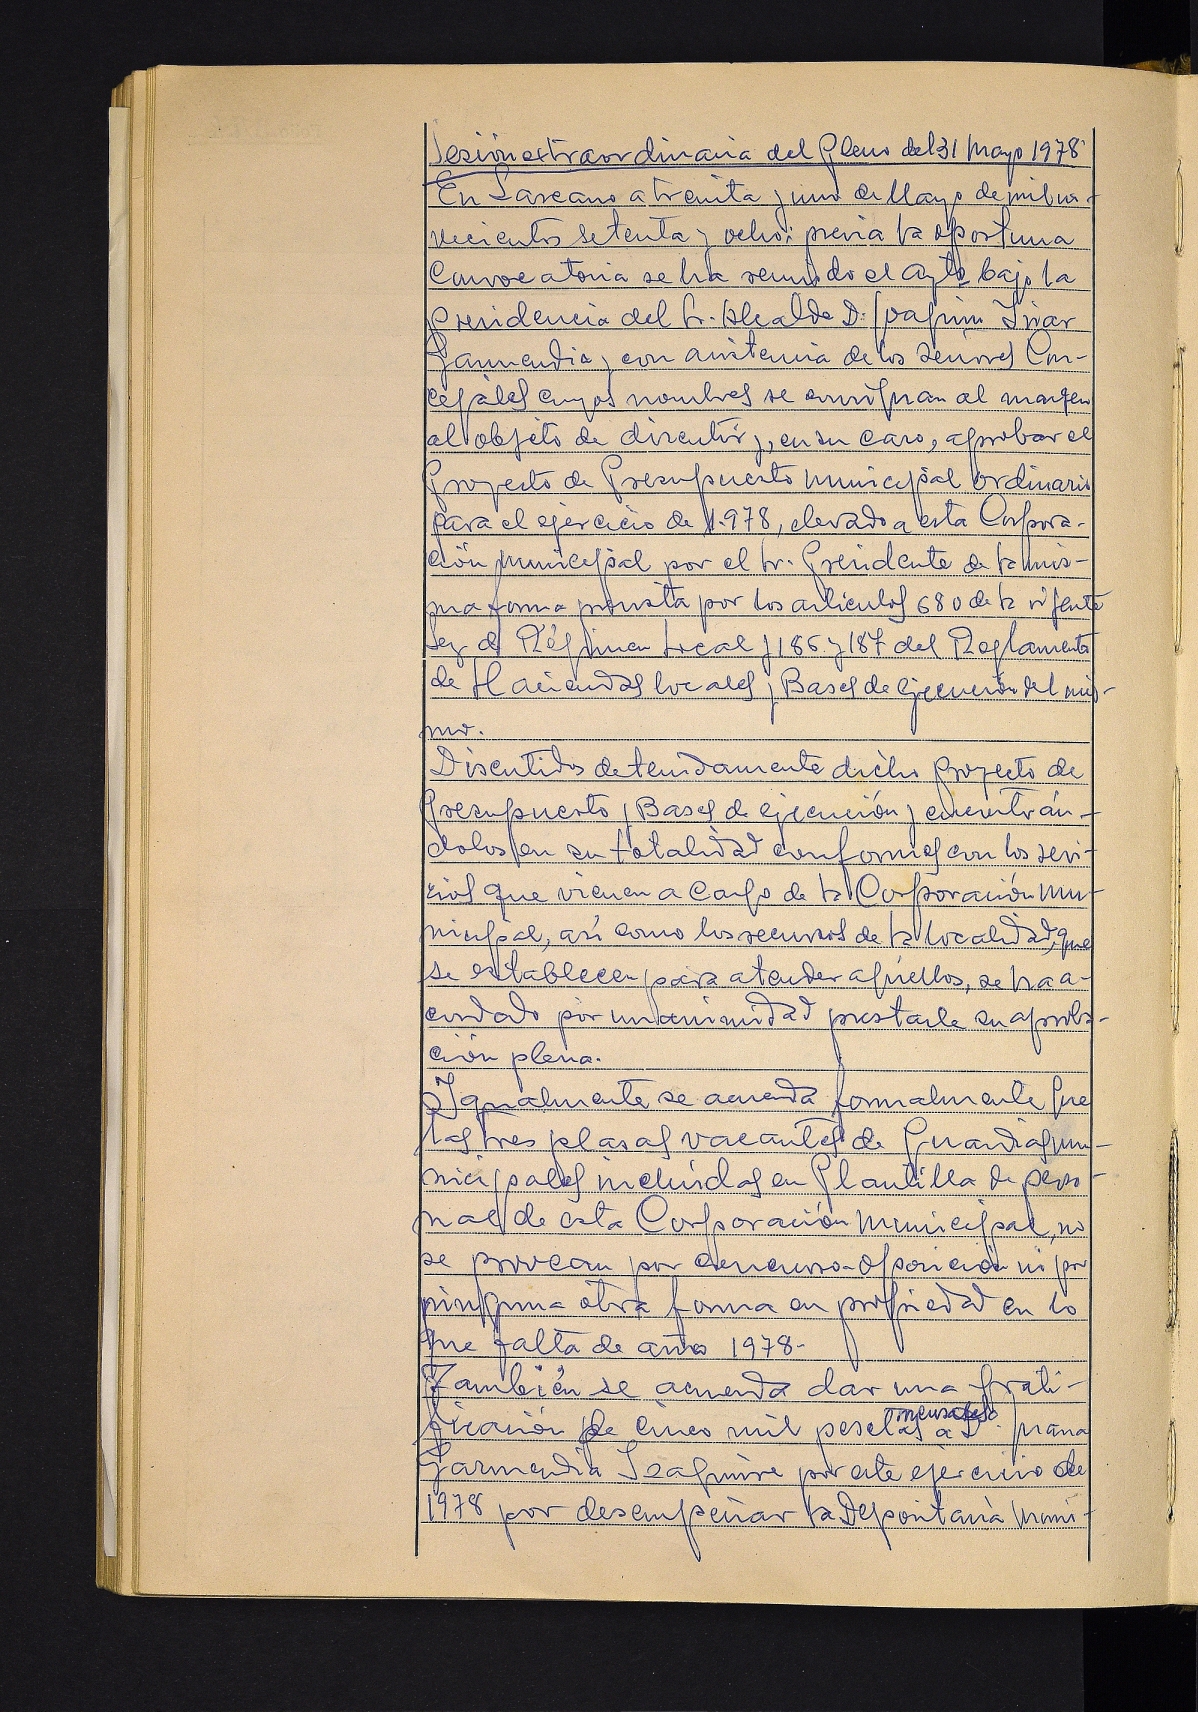 Sesión extraordinaria del Pleno del 31 Mayo 1978
En Lazcano a treinta y uno de Mayo de mil no-
vecientos setenta y ocho: previa la oportuna
Convocatoria se ha reunido el Ayto bajo la
Presidencia del Sr. Alcalde D. Joaquín
Garmendia y con asistencia de los señores Con-
cejales cuyos nombres se consignan al margen
al objeto de discutir y, en su caso, aprobar el
Proyecto de Presupuesto municipal ordinario
para el ejercicio de 1.978, elevado a esta Corpora-
ción municipal por el Sr. Presidente de la mis-
ma forma prevista por los artículos 680 de la vigente
Ley de Régimen Local y 186 y 187 del Reglamento
de Haciendas locales y Bases de Ejecución del mis-
mo.
Discutidos detenidamente dicho proyecto de
Presupuesto y Bases de ejecución y encontrán-
dolos en su totalidad conformes con los servi-
cios que vienen a cargo de la Corporación mu-
nicipal, así como los recursos de la localidad, que
se establecen para atender aquellos, se ha a-
cordado por unanimidad prestarle su aproba-
ción plena.
Igualmente se acuerda formalmente que
las tres plazas vacantes de Guardias mu-
nicipales incluidas en Plantilla de perso-
nal de esta Corporación municipal, no
se provean por concurso-oposición ni por
ninguna otra forma en propiedad en lo
que falta de año 1978-
También se acuerda dar una grati-
ficación de cinco mil pesetas mensuales a D. Juana
Garmendia por este ejercicio de
1978 por desempeñar la Depositaría Muni-